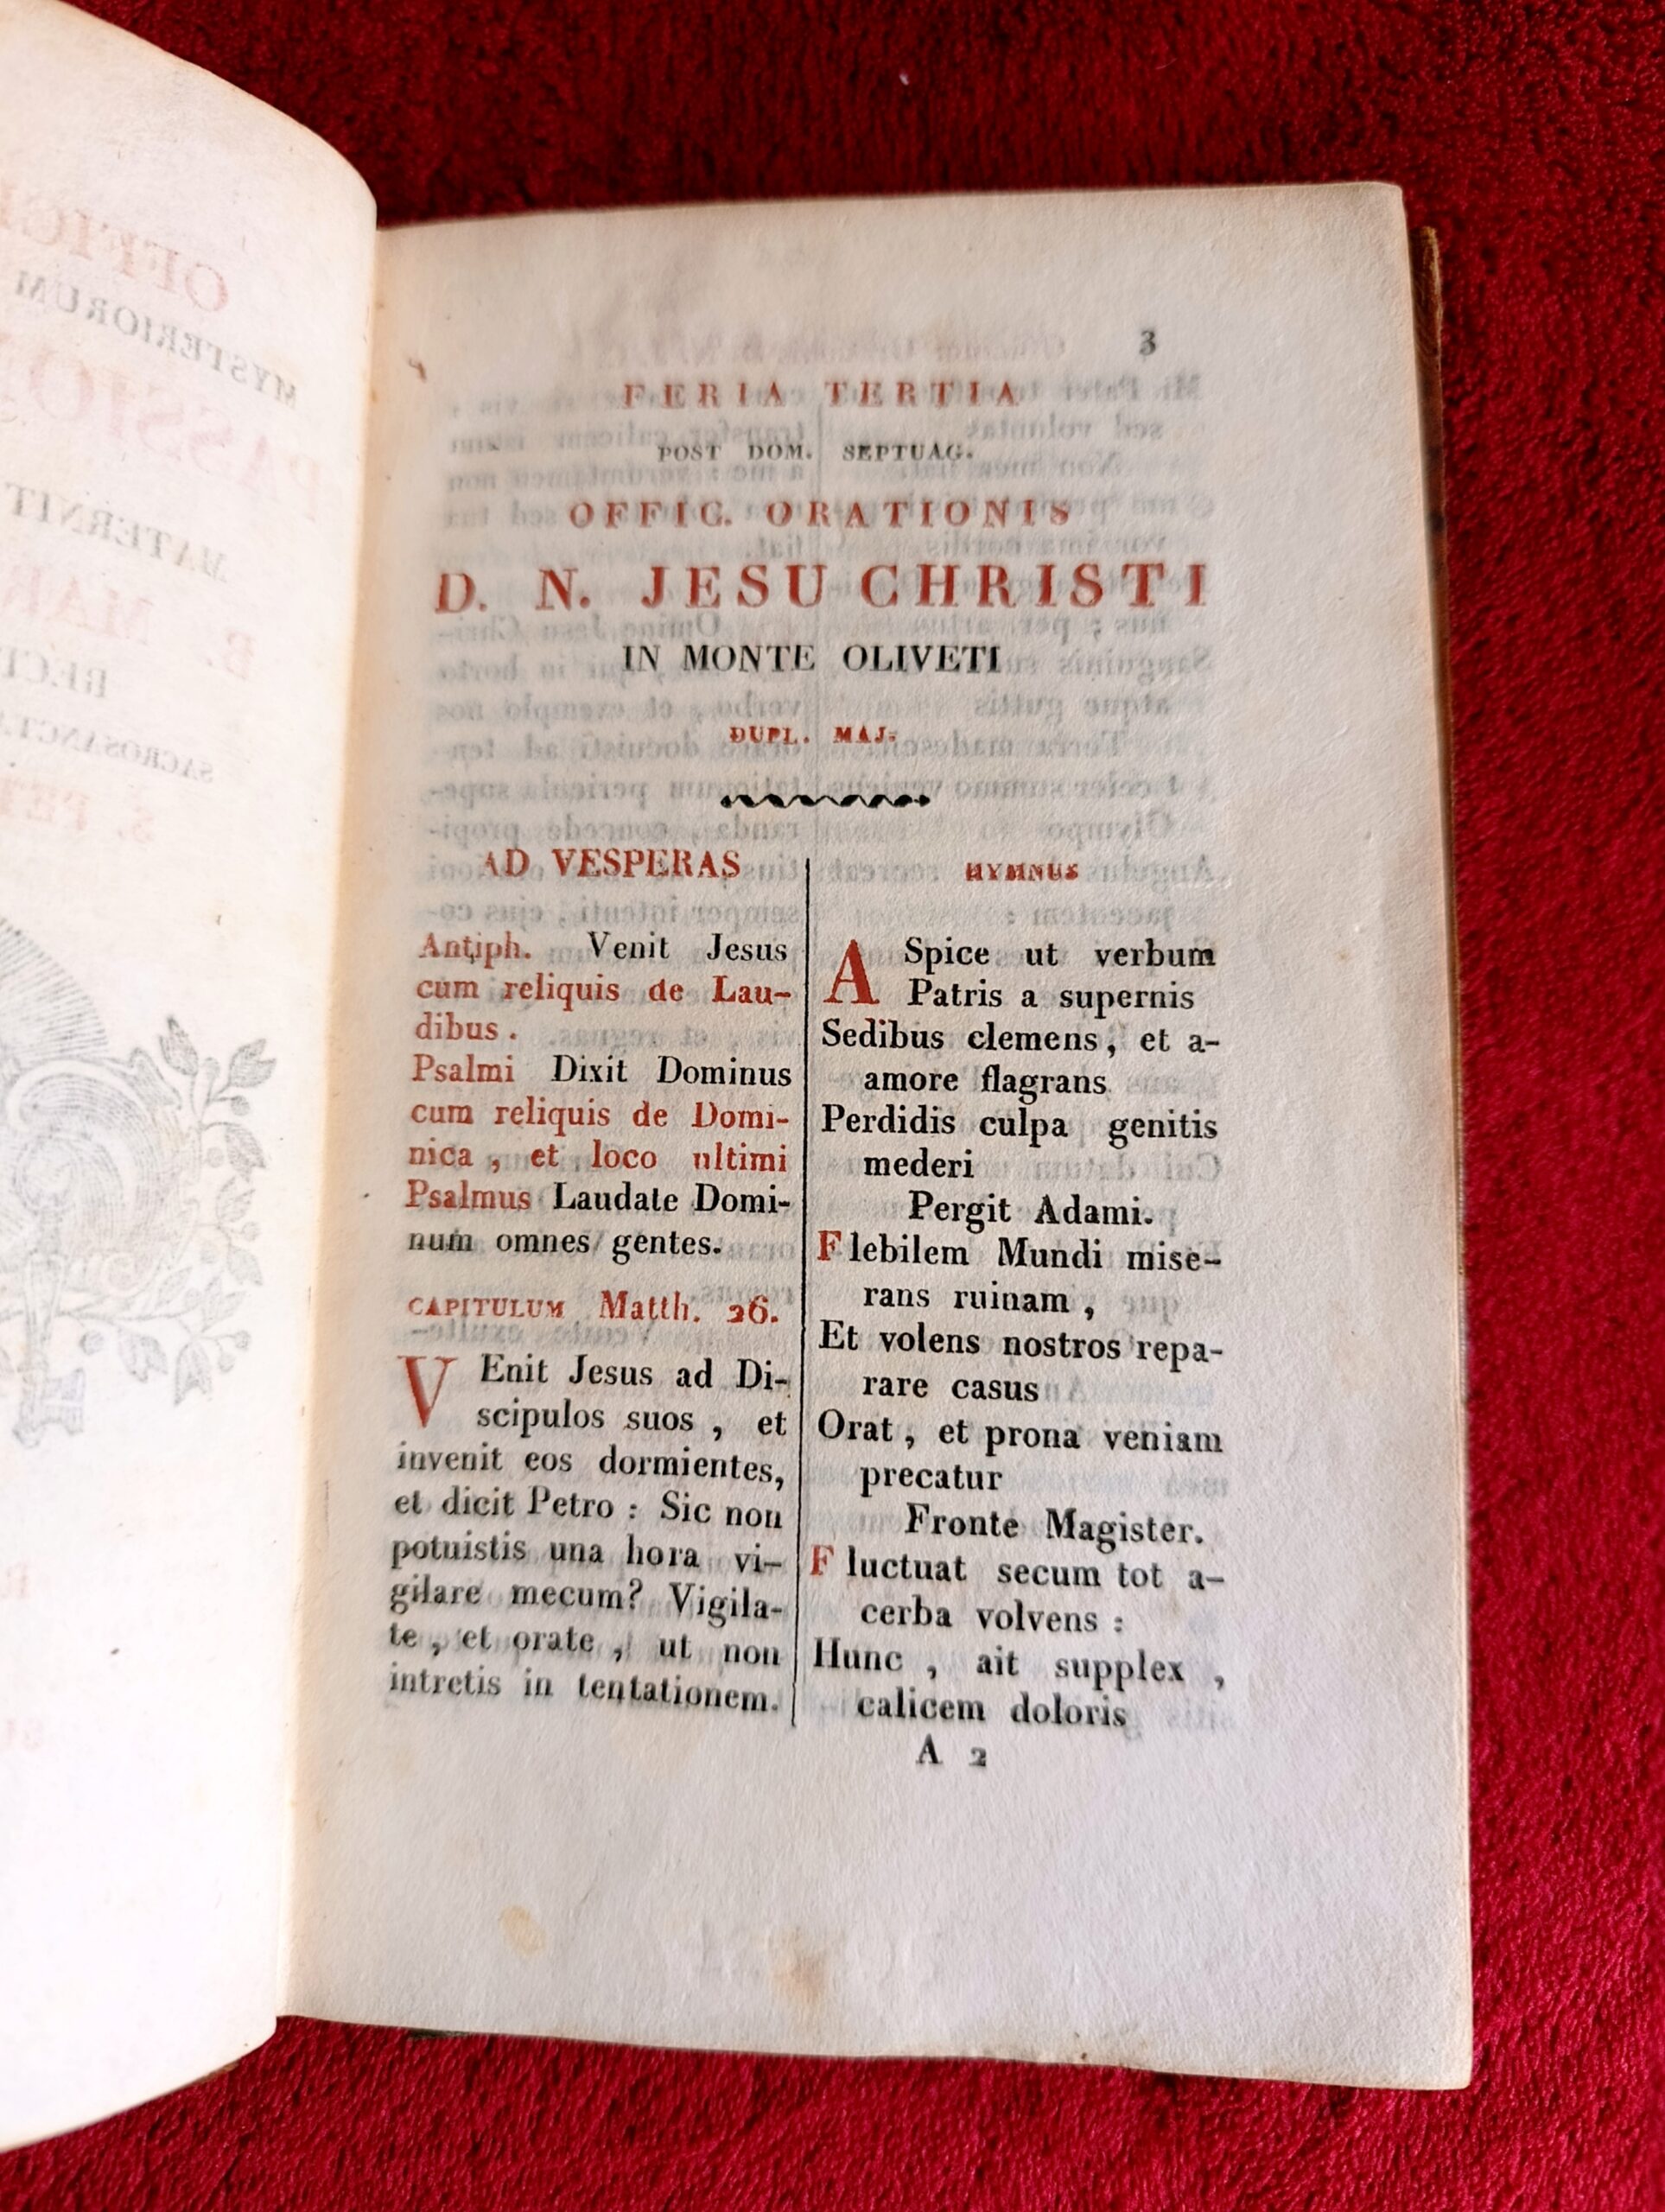 3
FERIA TERTIA
POST DOM. SEPTUAG.
OFFIC. ORATIONIS
D. N. JESU CHRISTI
IN MONTE OLIVETI
DUPL. MAJ.
AD VESPERAS
Antiph. Venit Jesus
cum reliquis de Lau-
dibus.
Psalmi Dixit Dominus
cum reliquis de Domi-
nica, et loco ultimi
Psalmus Laudate Domi-
num omnes gentes.
CAPITULUM Matth. 26.
VEnit Jesus ad Di-
scipulos suos, et
invenit eos dormientes,
et dicit Petro: Sic non
potuistis una hora vi-
gilare mecum? Vigila-
te, et orate, ut non
intretis in tentationem.
HYMNUS
ASpice ut verbum
Patris a supernis
Sedibus clemens, et a-
amore flagrans
Perdidis culpa genitis
mederi
Pergit Adami.
Flebilem Mundi mise-
rans ruinam,
Et volens nostros repa-
rare casus
Orat, et prona veniam
precatur
Fronte Magister.
Fluctuat secum tot a-
cerba volvens:
Hunc, ait supplex,
calicem doloris
A 2